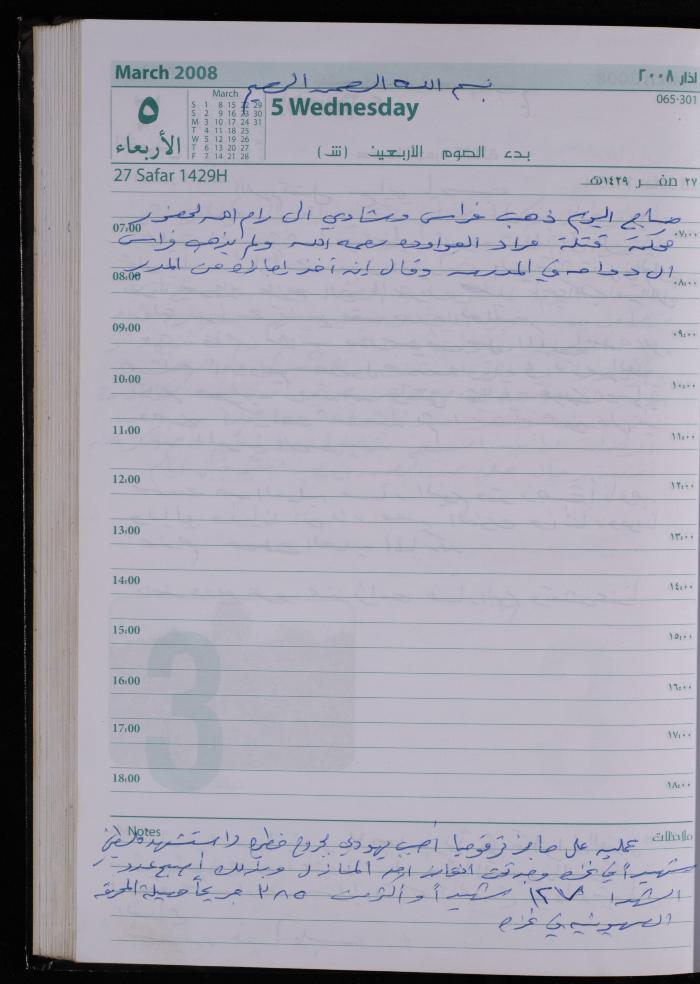 March 2008
بسم الله الرحمن الرحيم
اذار ٢٠٠٨
٥
الأربعاء
March
S 1 8 15 22 29
S 2 9 16 23 30
M 3 10 17 24 31
T 4 11 18 25
W 5 12 19 26
T 6 13 20 27
F 7 14 21 28
5 Wednesday
065-301
بدء الصوم الأربعين (ش)
27 Safar 1429H
٢٧ صفر ١٤٢٩هـ
صباح اليوم ذهب فراس وشادي الى رام الله لحضور
07:00
٠٧:٠٠
محكمة قتلة مراد العواودة رحمه الله ولم يذهب فراس
الى دوامه في المدرسه وقال انه أخذ إجازة من المدير
08:00
٠٨:٠٠
09:00
٠٩:٠٠
10:00
١٠:٠٠
11:00
١١:٠٠
12:00
١٢:٠٠
13:00
١٣:٠٠
14:00
١٤:٠٠
15:00
١٥:٠٠
16:00
١٦:٠٠
17:00
١٧:٠٠
18:00
١٨:٠٠
Notes
ملاحظات
عمليه على حاجز ترقوميا أصيب يهودي بجروح خطره واستشهد
شهيداً في غزه وجدو تحت انقاض احد المنازل وبذلك أصبح عدد
الشهدا ١٣٧ شهيداً وأكثر من ٣٨٥ جريحاً حصيلة المحرقة
الصهيونيه في غزه
3